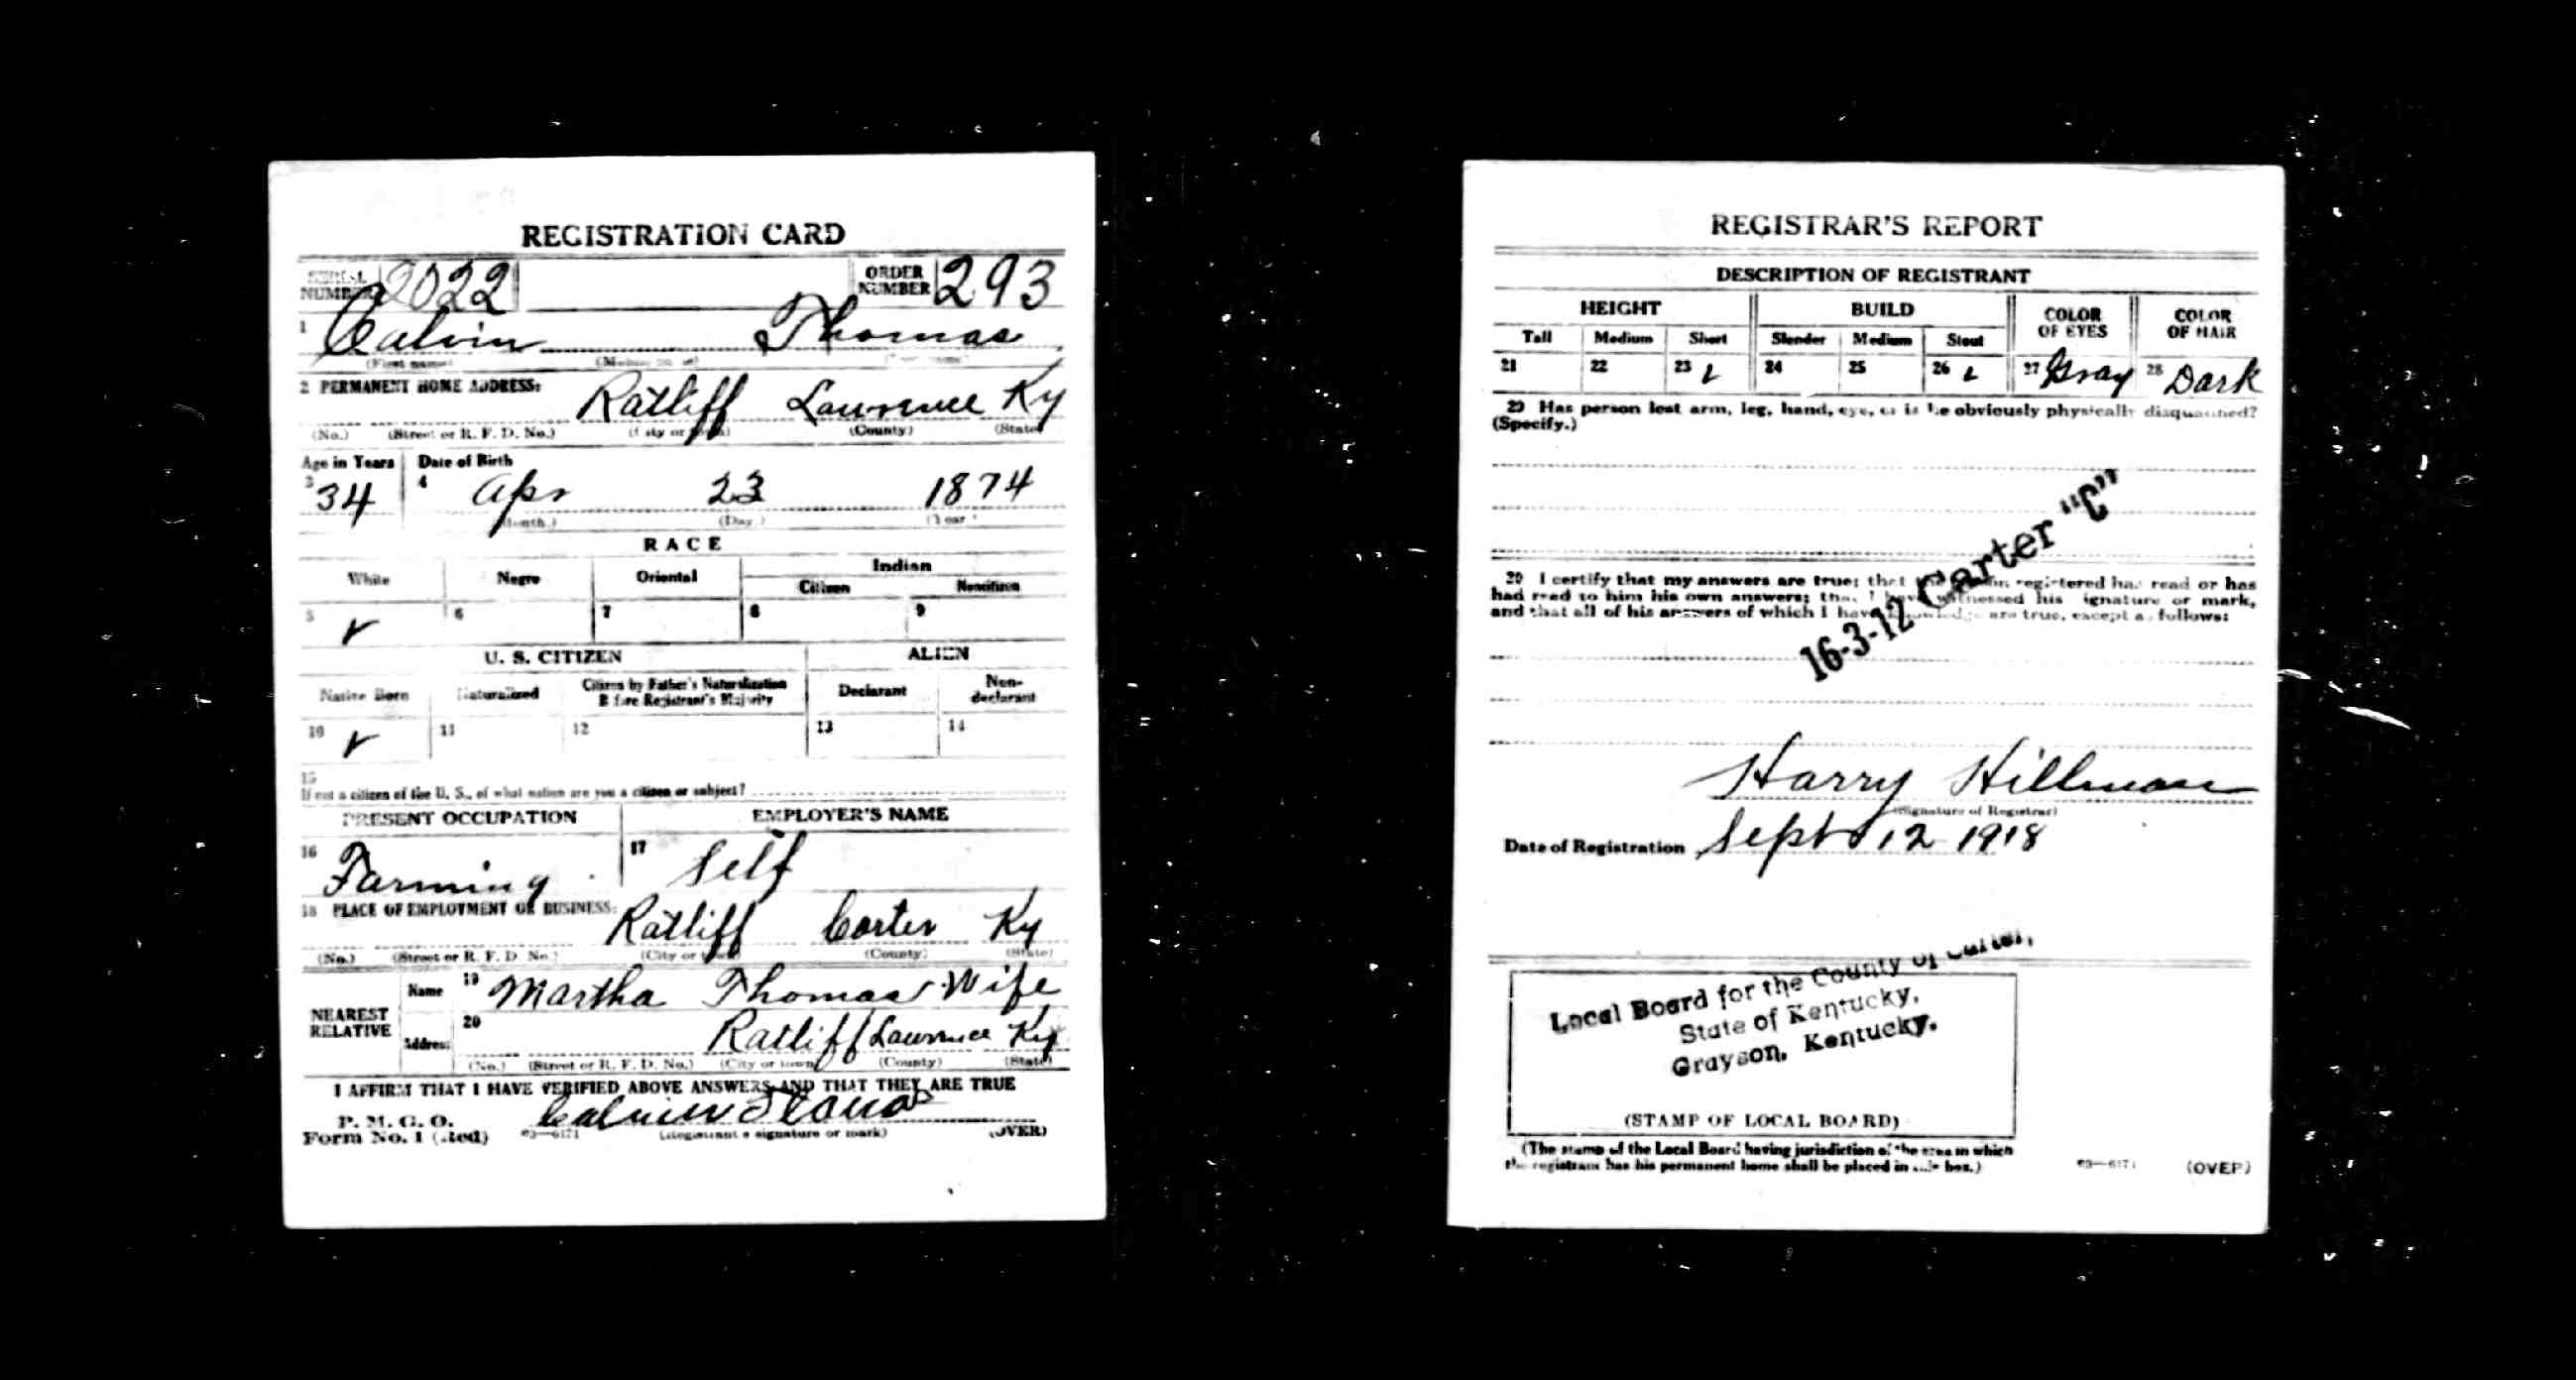 REGISTRATION CARD
SERIAL NUMBER 2022 ORDER NUMBER 293
1 Calvin Thomas
(First name) (Middle name) (Last name)
2 PERMANENT HOME ADDRESS:
Ratliff Lawrence Ky
(No.) (Street or R. F. D. No.) (City or town) (County) (State)
Age in Years Date of Birth
3 34 4 Apr 23 1874
(Month.) (Day.) (Year.)
RACE
White Negro Oriental Indian
Citizen Noncitizen
5 ✓ 6 7 8 9
U. S. CITIZEN ALIEN
Native Born Naturalized Citizen by Father's Naturalization Before Registrant's Majority Declarant Non-declarant
10 ✓ 11 12 13 14
15
If not a citizen of the U. S., of what nation are you a citizen or subject?
PRESENT OCCUPATION EMPLOYER'S NAME
16 Farming 17 Self
18 PLACE OF EMPLOYMENT OR BUSINESS:
Ratliff Carter Ky
(No.) (Street or R. F. D. No.) (City or town) (County) (State)
NEAREST RELATIVE Name 19 Martha Thomas Wife
Address 20 Ratliff Lawrence Ky
(No.) (Street or R. F. D. No.) (City or town) (County) (State)
I AFFIRM THAT I HAVE VERIFIED ABOVE ANSWERS AND THAT THEY ARE TRUE
P. M. G. O.
Form No. 1 (Red) 03—6171 Calvin (Registrant's signature or mark) (OVER)
REGISTRAR'S REPORT
DESCRIPTION OF REGISTRANT
HEIGHT BUILD COLOR OF EYES COLOR OF HAIR
Tall Medium Short Slender Medium Stout
21 22 23 ✓ 24 25 26 ✓ 27 Gray 28 Dark
29 Has person lost arm, leg, hand, eye, or is he obviously physically disqualified?
(Specify.)
30 I certify that my answers are true; that the person registered has read or has
had read to him his own answers; that I have witnessed his signature or mark,
and that all of his answers of which I have knowledge are true, except as follows:
16-3-12 Carter "C"
Harry Hillman
(Signature of Registrar)
Date of Registration Sept 12 1918
Local Board for the County of Carter,
State of Kentucky,
Grayson, Kentucky.
(STAMP OF LOCAL BOARD)
(The stamp of the Local Board having jurisdiction of the area in which
the registrant has his permanent home shall be placed in this box.)
03—6171 (OVER)